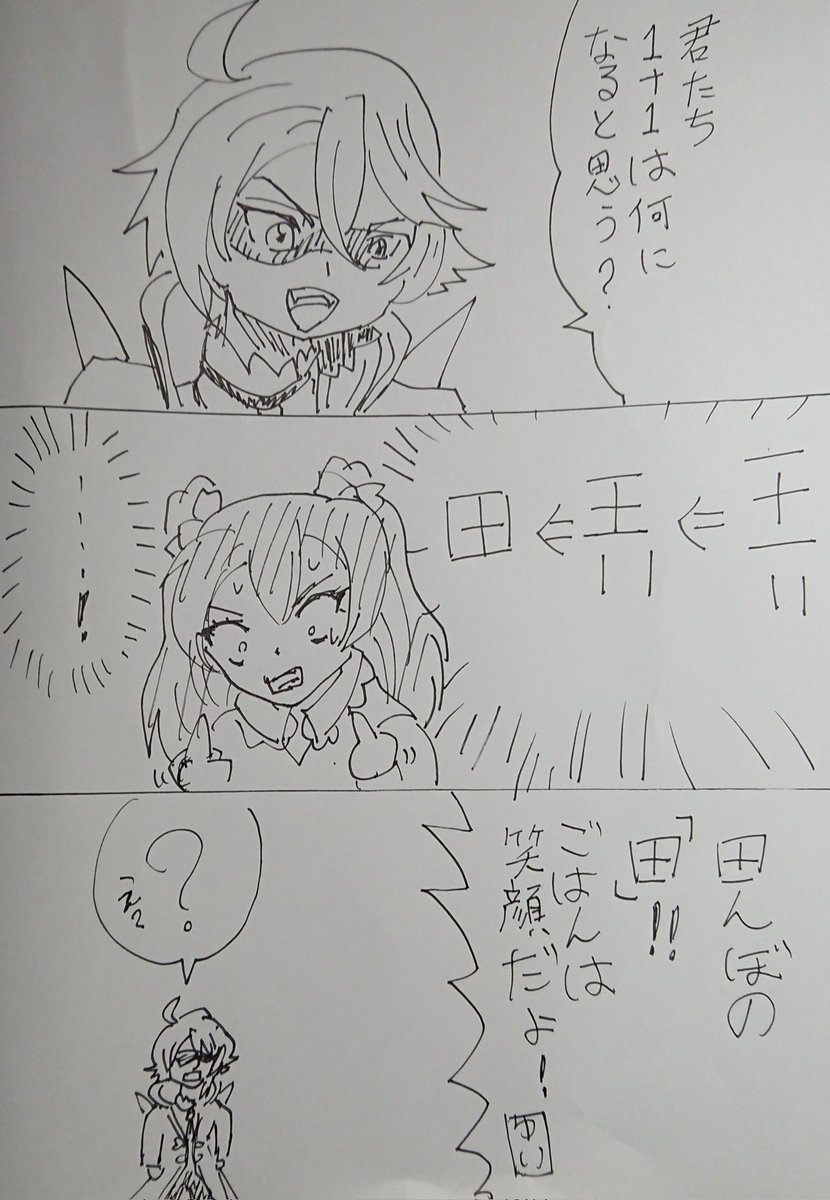 君たち
1+1は何に
なると思う?
一十一=
⇐
王=
⇐
田
・・・・!
田んぼの
「田」!!
ごはんは
笑顔だよ!
ゆい
?